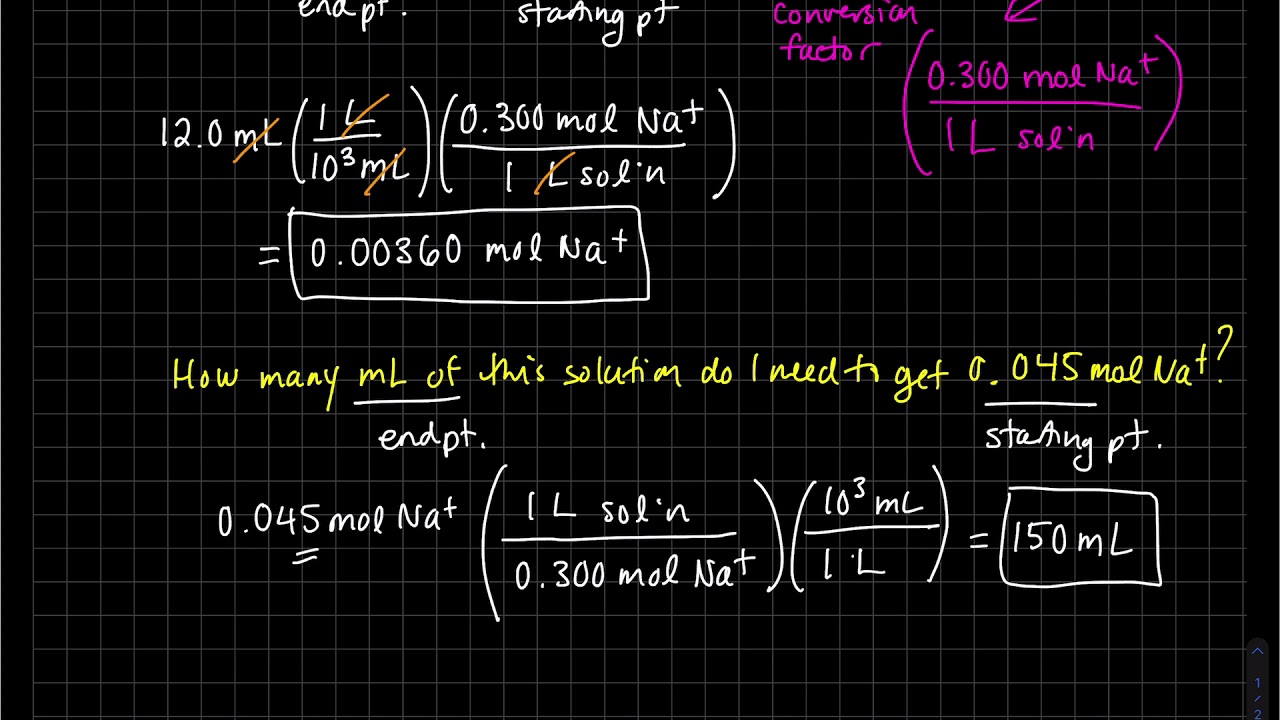 end pt. starting pt
Conversion
factor (0.300 mol Na⁺ / 1 L sol'n)
12.0 mL (1 L / 10³ mL) (0.300 mol Na⁺ / 1 L sol'n)
= 0.00360 mol Na⁺
How many mL of this solution do I need to get 0.045 mol Na⁺?
end pt. starting pt.
0.045 mol Na⁺ (1 L sol'n / 0.300 mol Na⁺) (10³ mL / 1 L) = 150 mL
1
/
2